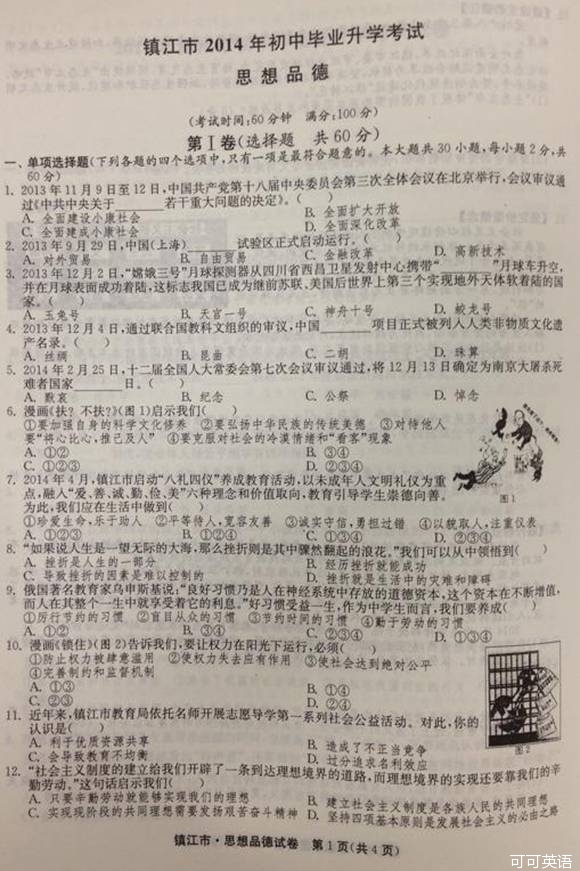 镇江市2014年初中毕业升学考试
思想品德
(考试时间:60分钟 满分:100分)
第Ⅰ卷(选择题 共60分)
一、单项选择题(下列各题的四个选项中,只有一项是最符合题意的。本大题共30小题,每小题2分,共
60分)
1. 2013年11月9日至12日,中国共产党第十八届中央委员会第三次全体会议在北京举行,会议审议通
过《中共中央关于________若干重大问题的决定》。( )
A. 全面建设小康社会 B. 全面扩大开放
C. 全面建成小康社会 D. 全面深化改革
2. 2013年9月29日,中国(上海)________试验区正式启动运行。( )
A. 对外贸易 B. 自由贸易 C. 金融改革 D. 高新技术
3. 2013年12月2日,“嫦娥三号”月球探测器从四川省西昌卫星发射中心携带“________”月球车升空,
并在月球表面成功着陆,这标志我国已成为继前苏联、美国后世界上第三个实现地外天体软着陆的国
家。( )
A. 玉兔号 B. 天宫一号 C. 神舟十号 D. 蛟龙号
4. 2013年12月4日,通过联合国教科文组织的审议,中国________项目正式被列入人类非物质文化遗
产名录。( )
A. 丝绸 B. 昆曲 C. 二胡 D. 珠算
5. 2014年2月25日,十二届全国人大常委会第七次会议审议通过,将12月13日确定为南京大屠杀死
难者国家________日。( )
A. 默哀 B. 纪念 C. 公祭 D. 悼念
6. 漫画《扶?不扶?》(图1)启示我们( )
①要加强自身的科学文化修养 ②要弘扬中华民族的传统美德 ③对待他人
要“将心比心,推己及人” ④要克服对社会的冷漠情绪和“看客”现象
A. ①② B. ③④
C. ①②③ D. ②③④
图1
7. 2014年4月,镇江市启动“八礼四仪”养成教育活动,以未成年人文明礼仪为重
点,融入“爱、善、诚、勤、俭、美”六种理念和价值取向,教育引导学生崇德向善。
为此,我们应在生活中做到( )
①珍爱生命,乐于助人 ②平等待人,宽容友善 ③诚实守信,勇担过错 ④以貌取人,注重仪表
A. ①②③ B. ①②④ C. ①③④ D. ②③④
8. “如果说人生是一望无际的大海,那么挫折则是其中骤然翻起的浪花。”我们可以从中领悟到( )
A. 挫折是人生的一部分 B. 经历挫折就能成功
C. 导致挫折的因素是难以控制的 D. 挫折就是生活中的灾难和障碍
9. 俄国著名教育家乌申斯基说:“良好习惯乃是人在神经系统中存放的道德资本,这个资本在不断增值,
而人在其整个一生中就享受着它的利息。”好习惯受益一生,作为中学生而言,我们要养成( )
①厉行节约的习惯 ②盲目从众的习惯 ③节约时间的习惯 ④勤于劳动的习惯
A. ①② B. ③④ C. ②③④ D. ①③④
10. 漫画《锁住》(图2)告诉我们,要让权力在阳光下运行,必须( )
①防止权力被肆意滥用 ②使权力失去应有作用 ③使社会达到绝对公平
④完善制约和监督机制
A. ①③ B. ①④
C. ②③ D. ②④
图2
11. 近年来,镇江市教育局依托名师开展志愿导学第一系列社会公益活动。对此,你的
认识是( )
A. 利于优质资源共享 B. 造成了不正当竞争
C. 会导致教育不均衡 D. 过分追求名利效应
12. “社会主义制度的建立给我们开辟了一条到达理想境界的道路,而理想境界的实现还要靠我们的辛
勤劳动。”这句话启示我们( )
A. 只要辛勤劳动就能够实现我们的理想 B. 建立社会主义制度是各族人民的共同理想
C. 实现现阶段的共同理想需要发扬艰苦奋斗精神 D. 坚持四项基本原则是发展社会主义的必由之路
镇江市·思想品德试卷 第1页(共4页)
可可英语